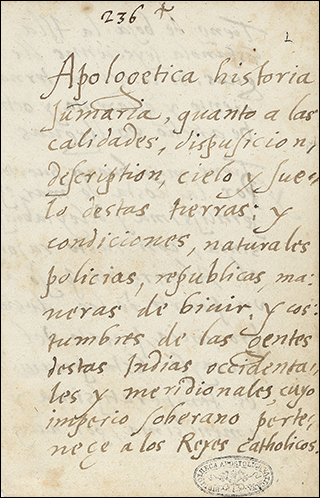 236
Apologetica historia
sumaria, quanto a las
calidades, dispusicion,
description, cielo y sue-
lo destas tierras: y
condiciones, naturales
policias, republicas, ma:
neras de biuir, y cos:
tumbres de las gentes
destas Indias occidenta:
les y meridionales, cuyo
imperio soberano perte:
neçe a los Reyes catholicos.